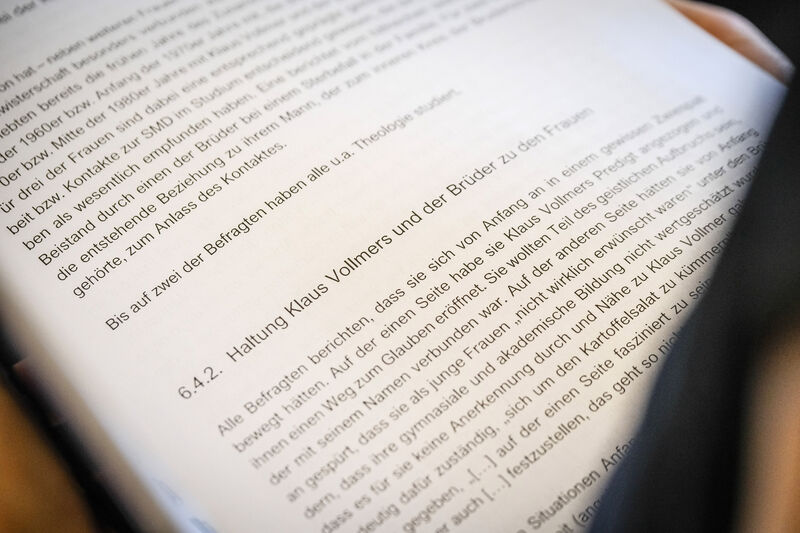 on hat – neben weiteren Frauen
wisterschaft besonders verbunden
ebten bereits die frühen Jahre des
der 1960er bzw. Anfang der 1970er Jahre mit
0er bzw. Mitte der 1980er Jahre mit Klaus Vollmer
ür drei der Frauen sind dabei eine entsprechend geprägte
beit bzw. Kontakte zur SMD im Studium entscheidend gewesen
ben als wesentlich empfunden haben. Eine berichtet vom
Beistand durch einen der Brüder bei einem Sterbefall in der Familie.
die entstehende Beziehung zu ihrem Mann, der zum inneren Kreis der
gehörte, zum Anlass des Kontaktes.
Bis auf zwei der Befragten haben alle u.a. Theologie studiert.
6.4.2. Haltung Klaus Vollmers und der Brüder zu den Frauen
Alle Befragten berichten, dass sie sich von Anfang an in einem gewissen Zwiespalt
bewegt hätten. Auf der einen Seite habe sie Klaus Vollmers Predigt angezogen und
ihnen einen Weg zum Glauben eröffnet. Sie wollten Teil des geistlichen Aufbruchs sein,
der mit seinem Namen verbunden war. Auf der anderen Seite hätten sie von Anfang
an gespürt, dass sie als junge Frauen „nicht wirklich erwünscht waren“ unter den
dern, dass ihre gymnasiale und akademische Bildung nicht wertgeschätzt
dass es für sie keine Anerkennung durch und Nähe zu Klaus Vollmer
deutig dafür zuständig, „sich um den Kartoffelsalat zu kümmern
gegeben, „[…] auf der einen Seite fasziniert zu
er auch […] festzustellen, das geht so
Situationen